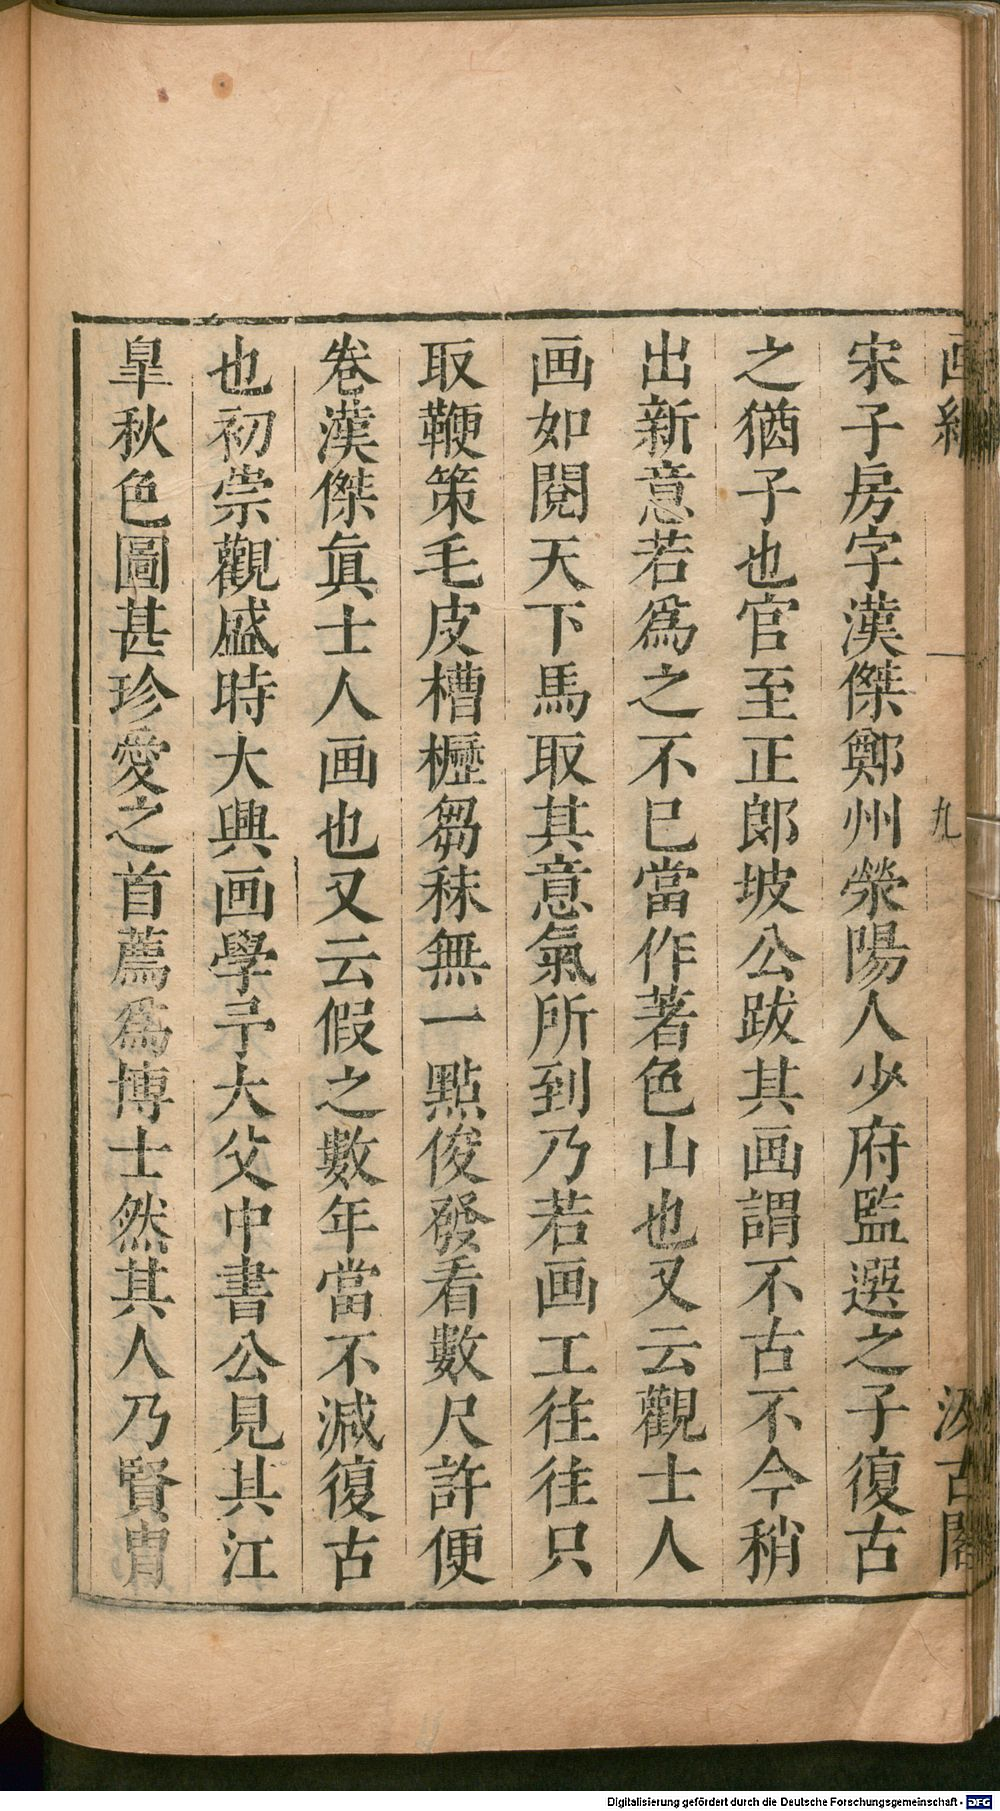 宋子房字漢傑鄭州滎陽人少府監選之子復古
之猶子也官至正郎坡公跋其画謂不古不今稍
出新意若爲之不已當作著色山也又云觀士人
画如閱天下馬取其意氣所到乃若画工往往只
取鞭策毛皮槽櫪芻秣無一點俊發看數尺許便
卷漢傑真士人画也又云假之數年當不減復古
也初崇觀盛時大興画學予大父中書公見其江
皐秋色圖甚珍愛之首薦爲博士然其人乃賢胄
九
汲古閣
Digitalisierung gefördert durch die Deutsche Forschungsgemeinschaft - DFG